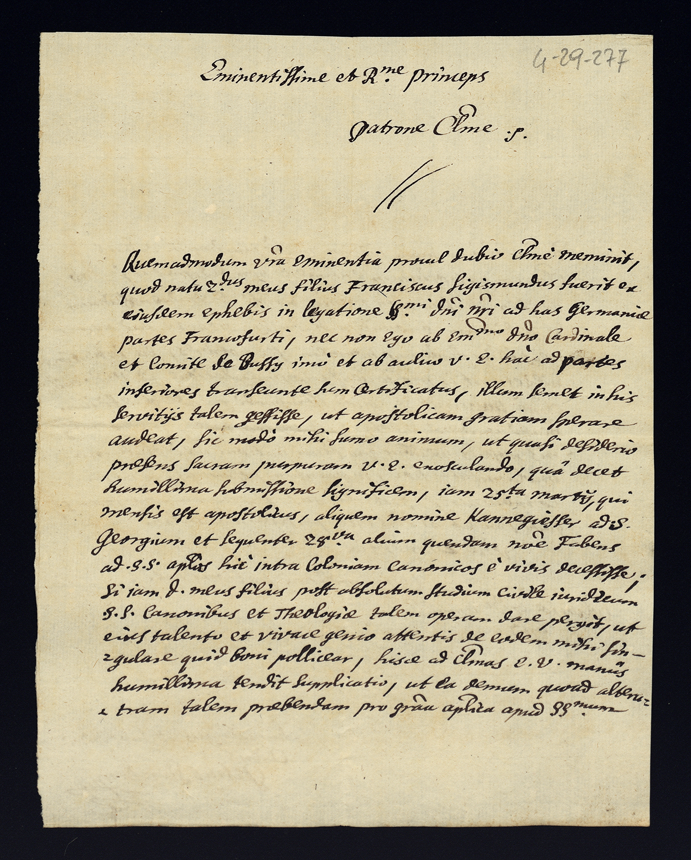 4-29-277
Eminentissime et Rme Princeps
Patrone Clme
Quemadmodum vra Eminentia procul dubio Clme meminit,
quod natu 2dus meus filius Franciscus Sigismundus fuerit ex
eiusdem ephebis in legatione Ssmi dni nri ad has Germaniæ
partes Francofurti, nec non Ego ab Emdmo dno Cardinale
et Comite de Bussy imò et ab aulico v. E. hâc ad partes
inferiores transeunte sum Certificatus, illum semet in his
servitijs talem gessisse, ut apostolicam gratiam sperare
audeat, sic modò mihi sumo animum, ut quasi desiderio
præsens sacram purpuram V. E. exosculando, quâ decet
humillima submissione significem, iam 25ta martij, qui
mensis est apostolicus, aliquem nomine Kannegiesser ad S.
Georgium et sequenter 28va alium quendam noe Fabens
ad S.S. aplos hîc intra Coloniam canonicos è vivis decessisse;
Si iam d. meus filius post absolutum studium civile iuridicum
S.S. Canonibus et Theologiæ talem operam dare pergit, ut
eius talento et vivace genio attentis de eodem mihi sin-
gulare quid boni pollicear, hisce ad Clmas E. V. manus
humillima tendit supplicatio, ut ea demum quoad alteru-
tram talem præbendam pro grâa aplica apud SSmum